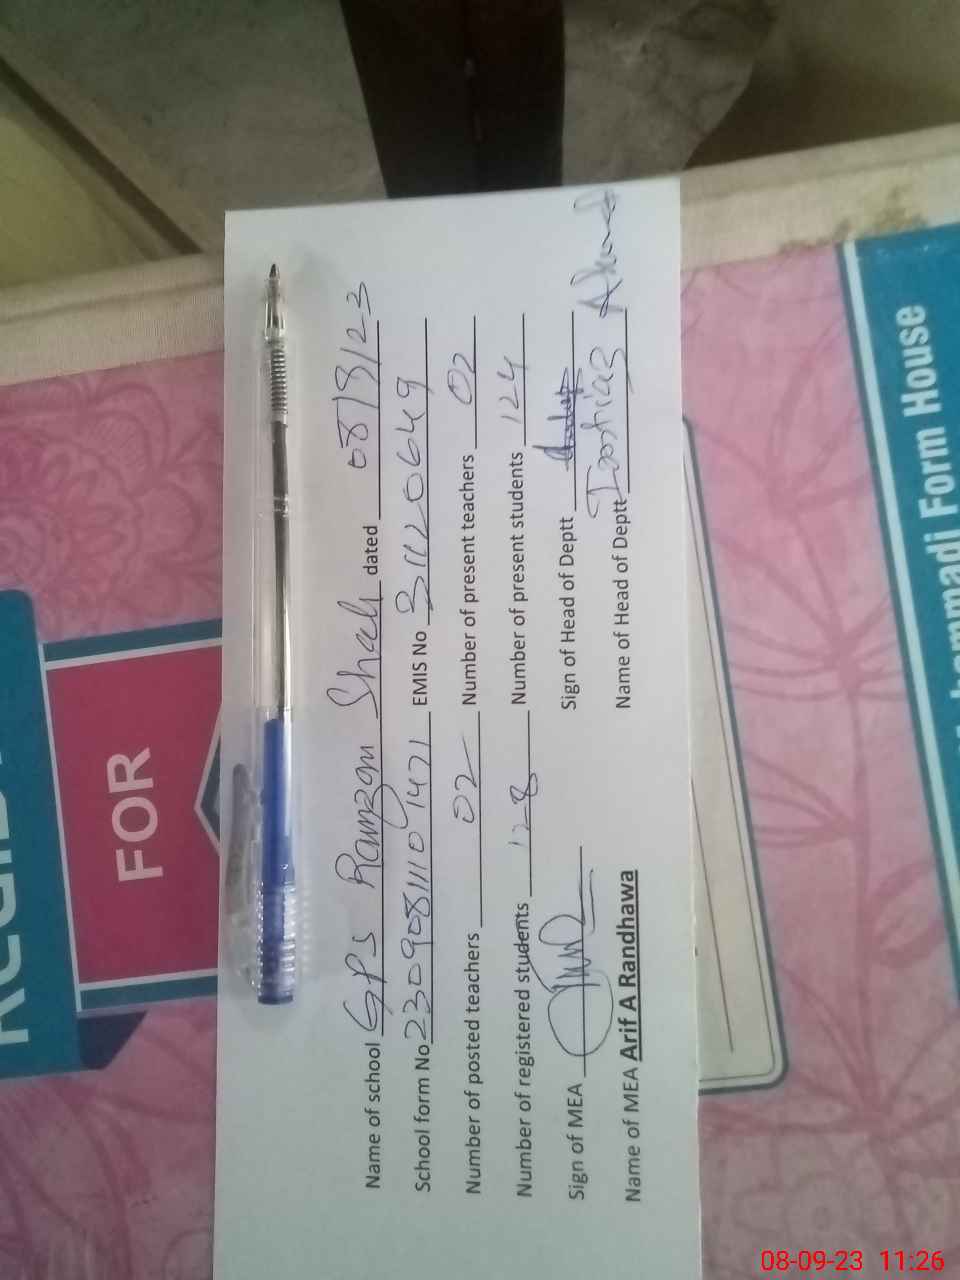 Name of school GPS Ramzan Shah dated 08/9/23
School form No 230908111071471 EMIS No 31120649
Number of posted teachers 02 Number of present teachers 02
Number of registered students 128 Number of present students 124
Sign of MEA Sign of Head of Deptt
Name of MEA Arif A Randhawa Name of Head of Deptt Ahmad
FOR
Form House
08-09-23 11:26